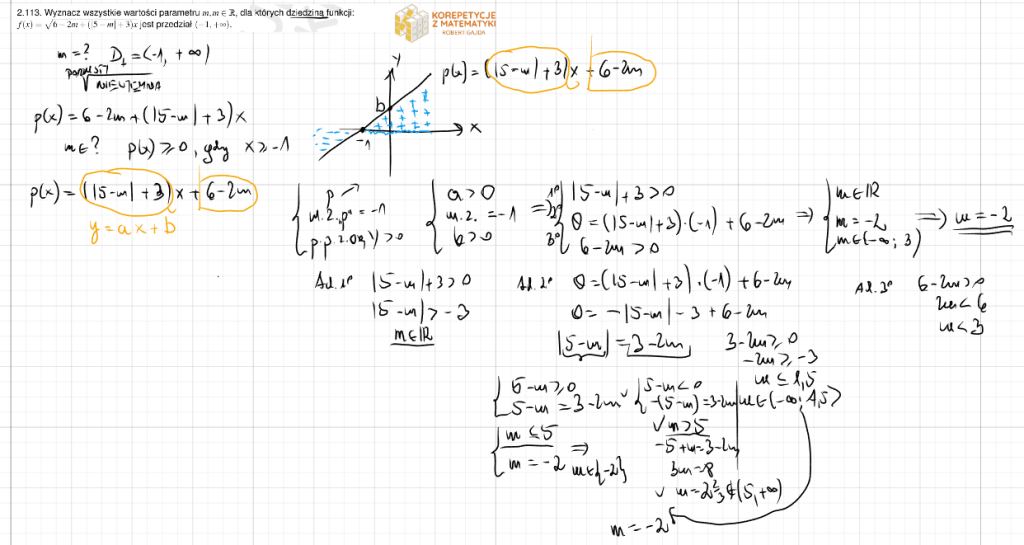 2.113. Wyznacz wszystkie wartości parametru m, m ∈ ℝ, dla których dziedziną funkcji:
f(x) = √6 − 2m + (|5 − m| + 3)x jest przedział ⟨−1, +∞).
KOREPETYCJE
Z MATEMATYKI
ROBERT GAJDA
m=? D_f=⟨-1, +∞)
√NIEUJEMNA
p(x) = 6-2m + (|5-m| + 3) x
m∈? p(x) ≥ 0, gdy x ≥ -1
p(x) = (|5-m| + 3) x + 6-2m
y = ax + b
y
b
-1
x
p(x) = (|5-m| + 3) x + 6-2m
{ p ↗
m.z. "p" = -1
p.p.z. OY, y > 0
{ a > 0
m.z. = -1
b > 0
⇒
{ 1° |5-m| + 3 > 0
2° 0 = (|5-m| + 3)·(-1) + 6-2m
3° 6-2m > 0
⇒
{ m∈ℝ
m = -2
m∈(-∞; 3)
⇒ m = -2
Ad. 1° |5-m| + 3 > 0
|5-m| > -3
m∈ℝ
Ad. 2° 0 = (|5-m| + 3)·(-1) + 6-2m
0 = -|5-m| - 3 + 6-2m
|5-m| = 3-2m
3-2m ≥ 0
-2m ≥ -3
m ≤ 1,5
m∈(-∞; 1,5⟩
{ 5-m ≥ 0
5-m = 3-2m
∨ { 5-m < 0
-(5-m) = 3-2m
{ m ≤ 5
m = -2
⇒ m∈{-2}
∨ m > 5
-5+m = 3-2m
3m = 8
∨ m = 2 2/3 ∉ (5, +∞)
m = -2
Ad. 3° 6-2m > 0
2m < 6
m < 3